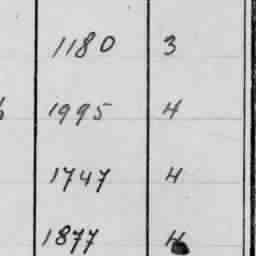 1180 3
1995 4
1747 4
1877 4